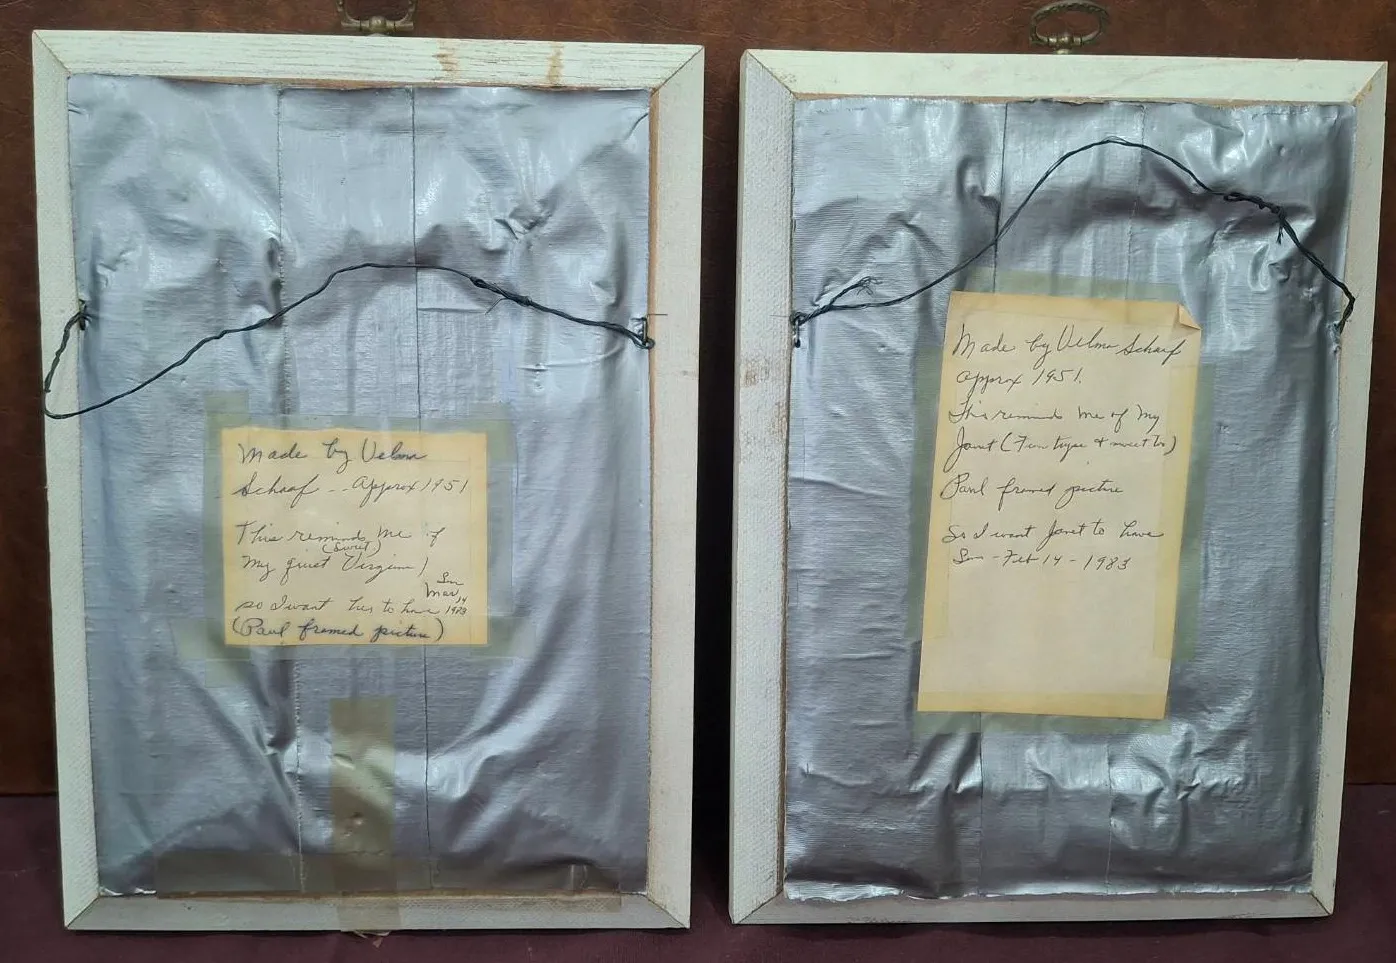 Made by Velma
Schaaf -- Approx 1951
This remind me of
(Sweet)
My quiet Virginia
Sun
Mar 14
so I want her to have 1983
(Paul framed picture)
Made by Velma Schaaf
approx 1951.
This remind me of My
Janet (
Paul framed picture
So I want Janet to have
Sun - Feb 14 - 1983